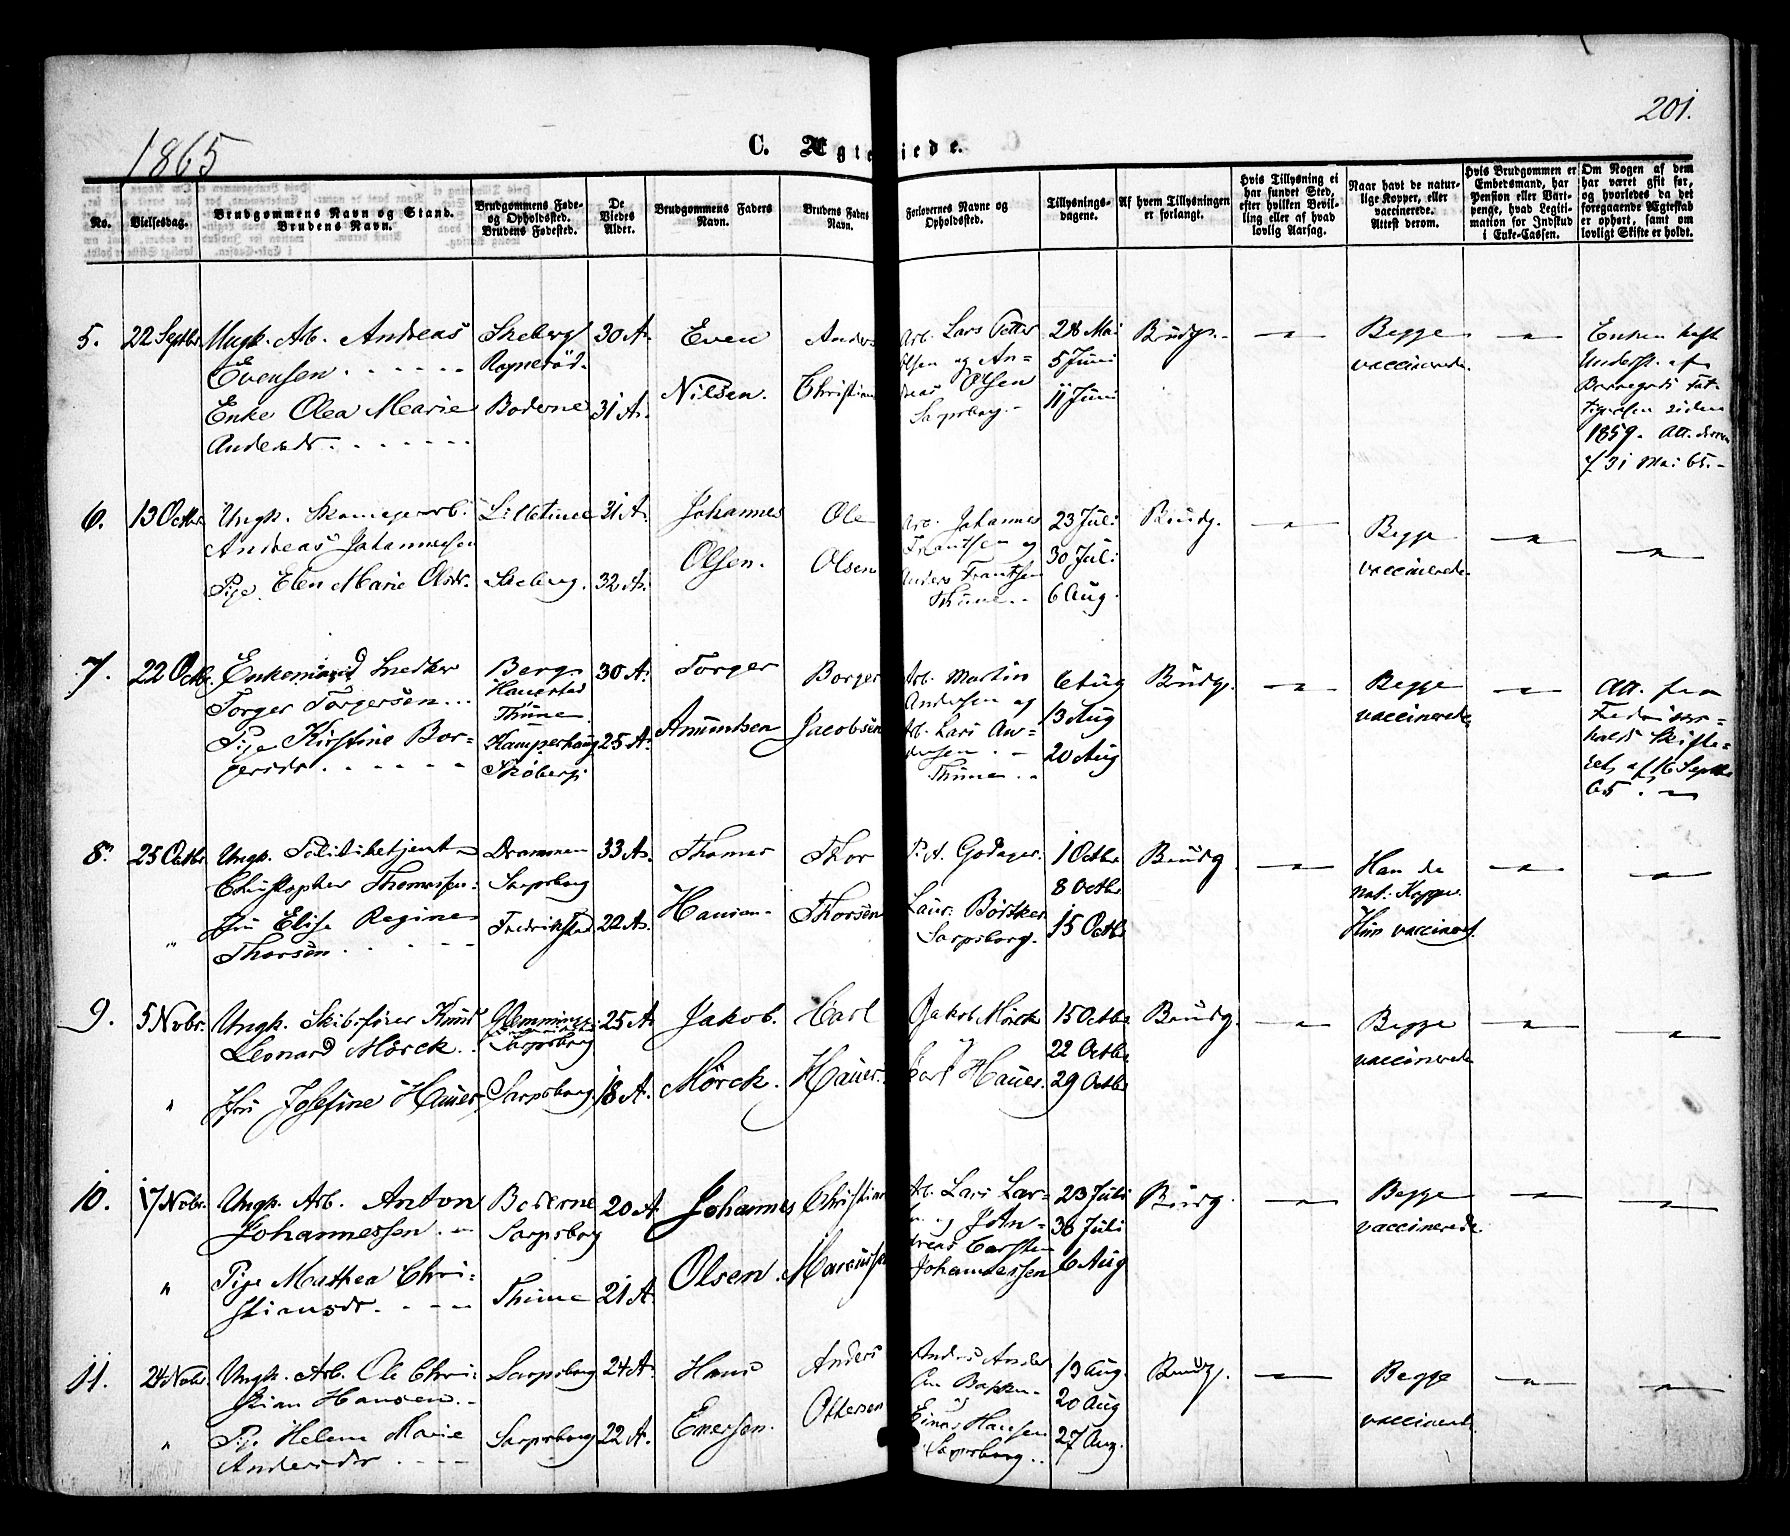 1865
201.
C. Ægteviede.
No.
Vielsesdag.
Brudgommens Navn og Stand.
Brudens Navn.
Brudgommens Føde-
og Opholdssted.
Brudens Fødested.
De
Viedes
Alder.
Brudgommens Faders
Navn.
Brudens Faders
Navn.
Forlovernes Navne og
Opholdssted.
Tillysnings-
dagene.
Af hvem Tillysningen
er forlangt.
Hvis Tillysning ei
har fundet Sted,
efter hvilken Bevil-
ling eller af hvad
lovlig Aarsag.
Naar havt de natur-
lige Kopper, eller
vaccinerede.
Attest derom.
Hvis Brudgommen er
Embedsmand, har
Pension eller Vart-
penge, hvad Legiti-
mation for Indskud
i Enke-Cassen.
Om Nogen af dem
har været gift før,
og hvorledes da det
foregaaende Ægteskab
er ophørt, samt om
lovligt Skifte er holdt.
5.
22 Septbr.
Ungk. Arb. Andreas
Evensen
Enke Olea Marie
Andersdr.
Skeberg
Boderne
30 A.
31 A.
Even
Nilsen.
Anders
Christian
Arb. Lars Petter
Olsen og An-
dreas Olsen
Sarpsborg.
28 Mai
5 Juni
11 Juni
Brudg.
Begge
vaccinerede.
Enken havt
1859. Att. derom
31 Mai 65.
6.
13 Octbr.
Ungk.
Andreas Johannesen
Pige Elen Marie Olsdr.
Skeberg.
31 A.
32 A.
Johannes
Olsen.
Ole
Olsen
Arb. Johannes
Frantsen og
Anders Frantsen
Thune.
23 Juli
30 Juli
6 Aug.
Brudg.
Begge
vaccinerede.
7.
22 Octb.
Enkemand Snedker
Torger Torgersen
Pige Kirstine Bor-
gersdr.
Berg
Thune
Skeberg
30 A.
25 A.
Torger
Amundsen
Borger
Jacobsen
Arb. Martin
Andersen og
Arb. Lars An-
dersen
Thune
6 Aug
13 Aug
20 Aug
Brudg.
Begge
vaccinerede
Att. fra
Fredriks-
halds Skifte-
ret af 16 Septbr
65.
8.
25 Octbr.
Ungk. Politibetjent
Christopher Thomassen
Jfr. Elise Regine
Thorsen
Drammen
Sarpsborg
Fredrikstad
33 A.
22 A.
Thomas
Hansen
Thor
Thorsen
P. A. Godager.
Laur. Böttker
Sarpsborg.
1 Octbr
8 Octbr
15 Octbr
Brudg.
Han de
nat. Kopper.
Hun vaccineret.
9.
5 Novbr.
Ungk. Skibsfører Knud
Leonard Mörck.
Jfr. Josefine Hauer
Glemminge
Sarpsborg
Sarpsborg
25 A.
18 A.
Jakob.
Mörck.
Carl
Hauer.
Jakob Mörck
Carl Hauer.
15 Octbr
22 Octbr
29 Octbr
Brudg.
Begge
vaccinerede
10.
17 Novbr.
Ungk. Arb. Anton
Johannessen.
Pige Mathea Chri-
stiansdr.
Boderne
Sarpsborg
Thune
20 A.
21 A.
Johannes
Olsen.
Christian
Marcussen
Arb. Lars Lar-
sen og An-
dreas Carsten
Johannessen
23 Juli
30 Juli
6 Aug
Brudg.
Begge
vaccinerede.
11.
24 Novbr.
Ungk. Arb. Ole Chri-
stian Hansen.
Pige Helene Marie
Andersdr
Sarpsborg
Sarpsborg
24 A.
22 A.
Hans
Enersen.
Anders
Ottersen
Anders Ander-
sen Bakken
Einar Hansen
Sarpsborg.
13 Aug.
20 Aug
27 Aug.
Brudg.
Begge
vaccineret